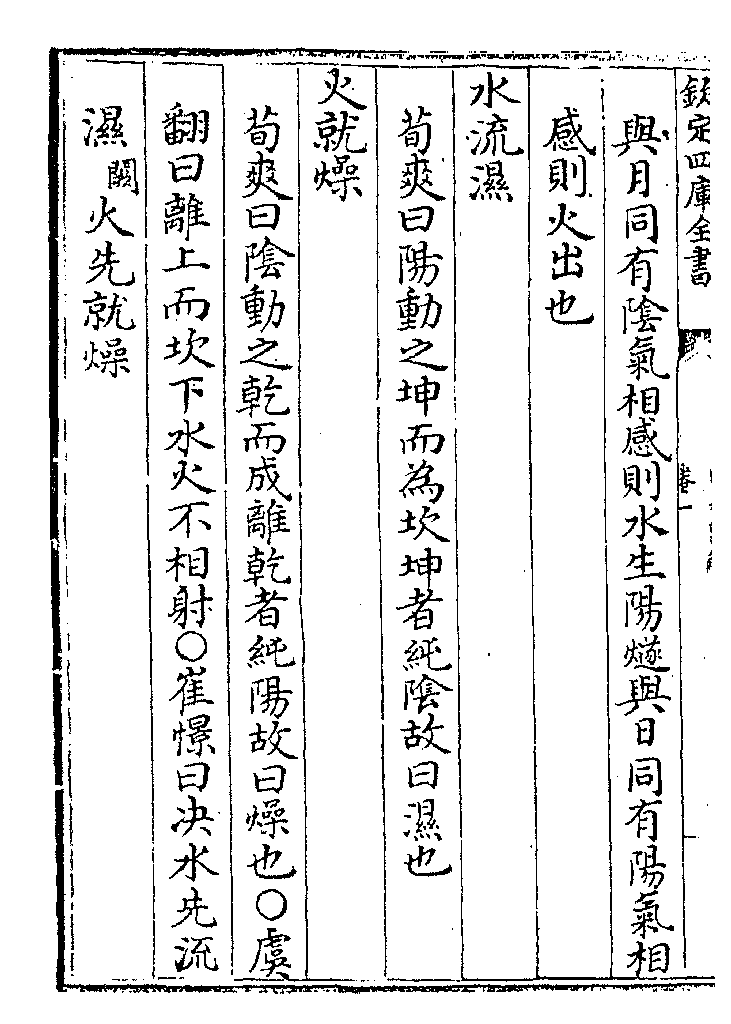 欽定四庫全書
卷一
與月同有陰氣相感則水生陽燧與日同有陽氣相
感則火出也
水流濕
荀爽曰陽動之坤而為坎坤者純陰故曰濕也
火就燥
荀爽曰陰動之乾而成離乾者純陽故曰燥也○虞
翻曰離上而坎下水火不相射○崔憬曰决水先流
濕闕火先就燥